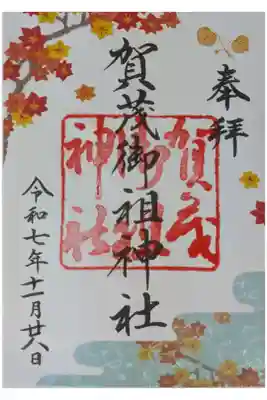 奉拝
賀茂御祖神社
賀茂
御祖
神社
令和七年十一月廿八日